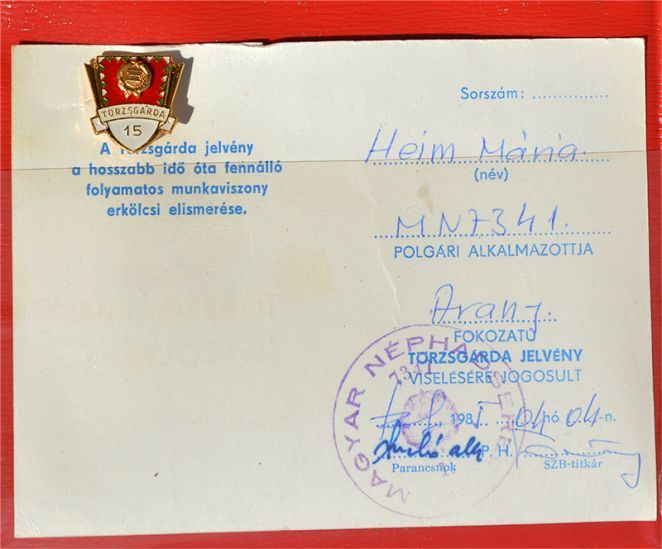 TÖRZSGÁRDA
15
A Törzsgárda jelvény
a hosszabb idő óta fennálló
folyamatos munkaviszony
erkölcsi elismerése.
Sorszám: ................
Heim Mária
(név)
MN7341.
POLGÁRI ALKALMAZOTTJA
Arany.
FOKOZATÚ
TÖRZSGÁRDA JELVÉNY
VISELÉSÉRE JOGOSULT
198 04 hó 04.-n.
P. H.
Parancsnok
SZB-titkár
MAGYAR NÉPHADSEREG
7341